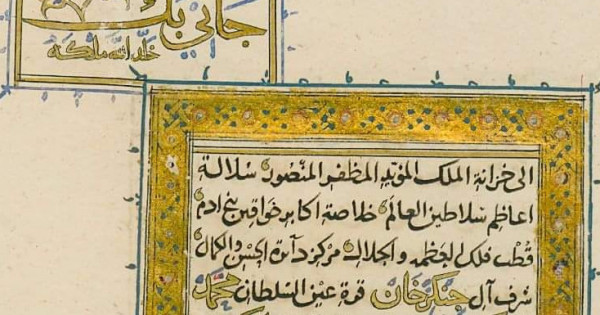 جاني بك
خلد الله ملكه
الى خزانة الملك المؤيد المظفر المنصور سلالة
اعاظم سلاطين العالم خلاصة اكابر خواقين بني ادم
قطب فلك العظمة والجلال مركز دائرة الحسن والكمال
شرف آل جنكز خان قرة عين السلطان محمد